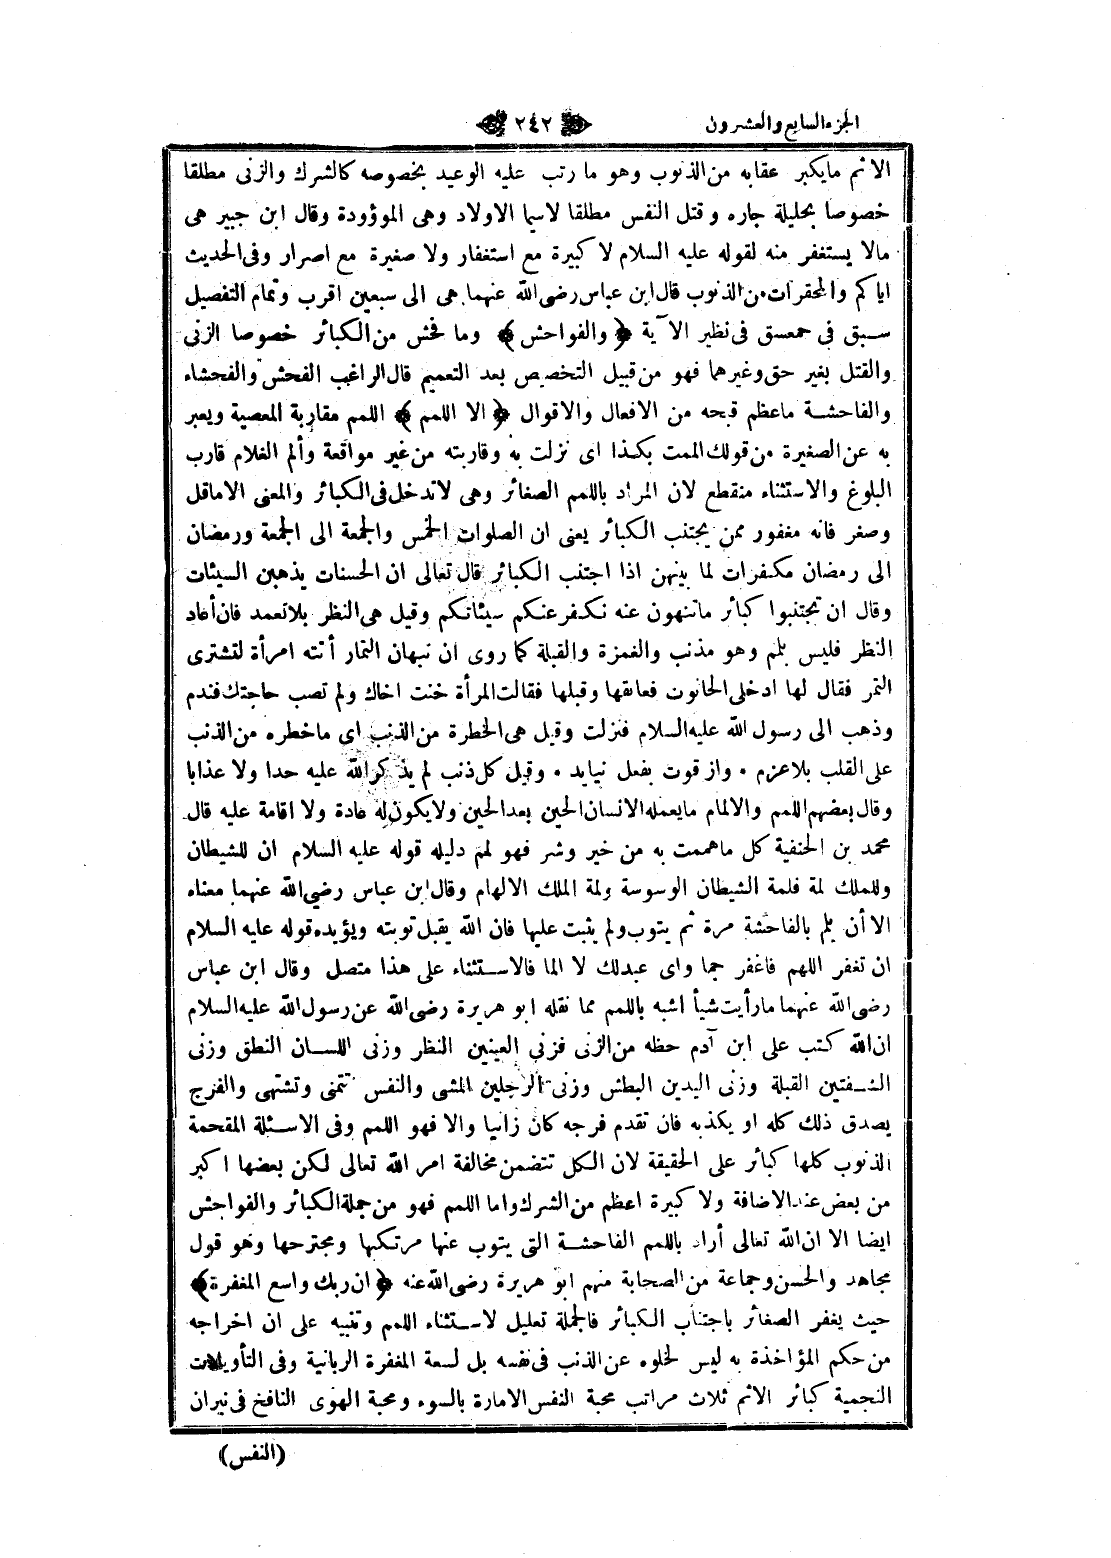 الجزء السابع والعشرون
٢٤٢
الاثم مايكبر عقابه من الذنوب وهو ما رتب عليه الوعيد بخصوصه كالشرك والزنى مطلقا
خصوصا بحليلة جاره وقتل النفس مطلقا لاسيما الاولاد وهى الموؤودة وقال ابن جبير هى
مالا يستغفر منه لقوله عليه السلام لا كبيرة مع استغفار ولا صغيرة مع اصرار وفى الحديث
اياكم والمحقرات من الذنوب قال ابن عباس رضى الله عنهما هى الى سبعين اقرب وتمام التفصيل
سبق فى حمعسق فى نظير الآية ﴿ والفواحش ﴾ وما فحش من الكبائر خصوصا الزنى
والقتل بغير حق وغيرهما فهو من قبيل التخصيص بعد التعميم قال الراغب الفحش والفحشاء
والفاحشة ماعظم قبحه من الافعال والاقوال ﴿ الا اللمم ﴾ اللمم مقاربة المعصية ويعبر
به عن الصغيرة من قولك الممت بكذا اى نزلت به وقاربته من غير مواقعة وألم الغلام قارب
البلوغ والاستثناء منقطع لان المراد باللمم الصغائر وهى لاتدخل فى الكبائر والمعنى الاماقل
وصغر فانه مغفور ممن يجتنب الكبائر يعنى ان الصلوات الخمس والجمعة الى الجمعة ورمضان
الى رمضان مكفرات لما بينهن اذا اجتنب الكبائر قال تعالى ان الحسنات يذهبن السيئات
وقال ان تجتنبوا كبائر ماتنهون عنه نكفر عنكم سيئاتكم وقيل هى النظر بلاتعمد فان أعاد
النظر فليس بلمم وهو مذنب والغمزة والقبلة كما روى ان نبهان التمار أتته امرأة لتشترى
التمر فقال لها ادخلى الحانوت فعانقها وقبلها فقالت المرأة خنت اخاك ولم تصب حاجتك فندم
وذهب الى رسول الله عليه السلام فنزلت وقيل هى الخطرة من الذنب اى ماخطره من الذنب
على القلب بلاعزم • واز قوت بفعل نيايد • وقيل كل ذنب لم يذكر الله عليه حدا ولا عذابا
وقال بعضهم اللمم والالمام مايعمله الانسان الحين بعد الحين ولايكون له عادة ولا اقامة عليه قال
محمد بن الحنفية كل ماهممت به من خير وشر فهو لمم دليله قوله عليه السلام ان للشيطان
وللملك لمة فلمة الشيطان الوسوسة ولمة الملك الالهام وقال ابن عباس رضى الله عنهما معناه
الا أن يلم بالفاحشة مرة ثم يتوب ولم يثبت عليها فان الله يقبل توبته ويؤيده قوله عليه السلام
ان تغفر اللهم فاغفر جما واى عبدلك لا الما فالاستثناء على هذا متصل وقال ابن عباس
رضى الله عنهما مارأيت شيأ اشبه باللمم مما نقله ابو هريرة رضى الله عن رسول الله عليه السلام
ان الله كتب على ابن آدم حظه من الزنى فزنى العينين النظر وزنى اللسان النطق وزنى
الشفتين القبلة وزنى اليدين البطش وزنى الرجلين المشى والنفس تتمنى وتشتهى والفرج
يصدق ذلك كله او يكذبه فان تقدم فرجه كان زانيا والا فهو اللمم وفى الاسئلة المقحمة
الذنوب كلها كبائر على الحقيقة لان الكل تتضمن مخالفة امر الله تعالى لكن بعضها اكبر
من بعض عند الاضافة ولا كبيرة اعظم من الشرك واما اللمم فهو من جملة الكبائر والفواحش
ايضا الا ان الله تعالى أراد باللمم الفاحشة التى يتوب عنها مرتكبها ومجترحها وهو قول
مجاهد والحسن وجماعة من الصحابة منهم ابو هريرة رضى الله عنه ﴿ ان ربك واسع المغفرة ﴾
حيث يغفر الصغائر باجتناب الكبائر فالجملة تعليل لاستثناء اللمم وتنبيه على ان اخراجه
من حكم المؤاخذة به ليس لخلوه عن الذنب فى نفسه بل لسعة المغفرة الربانية وفى التأويلات
النجمية كبائر الاثم ثلاث مراتب محبة النفس الامارة بالسوء ومحبة الهوى النافخ فى نيران
(النفس)